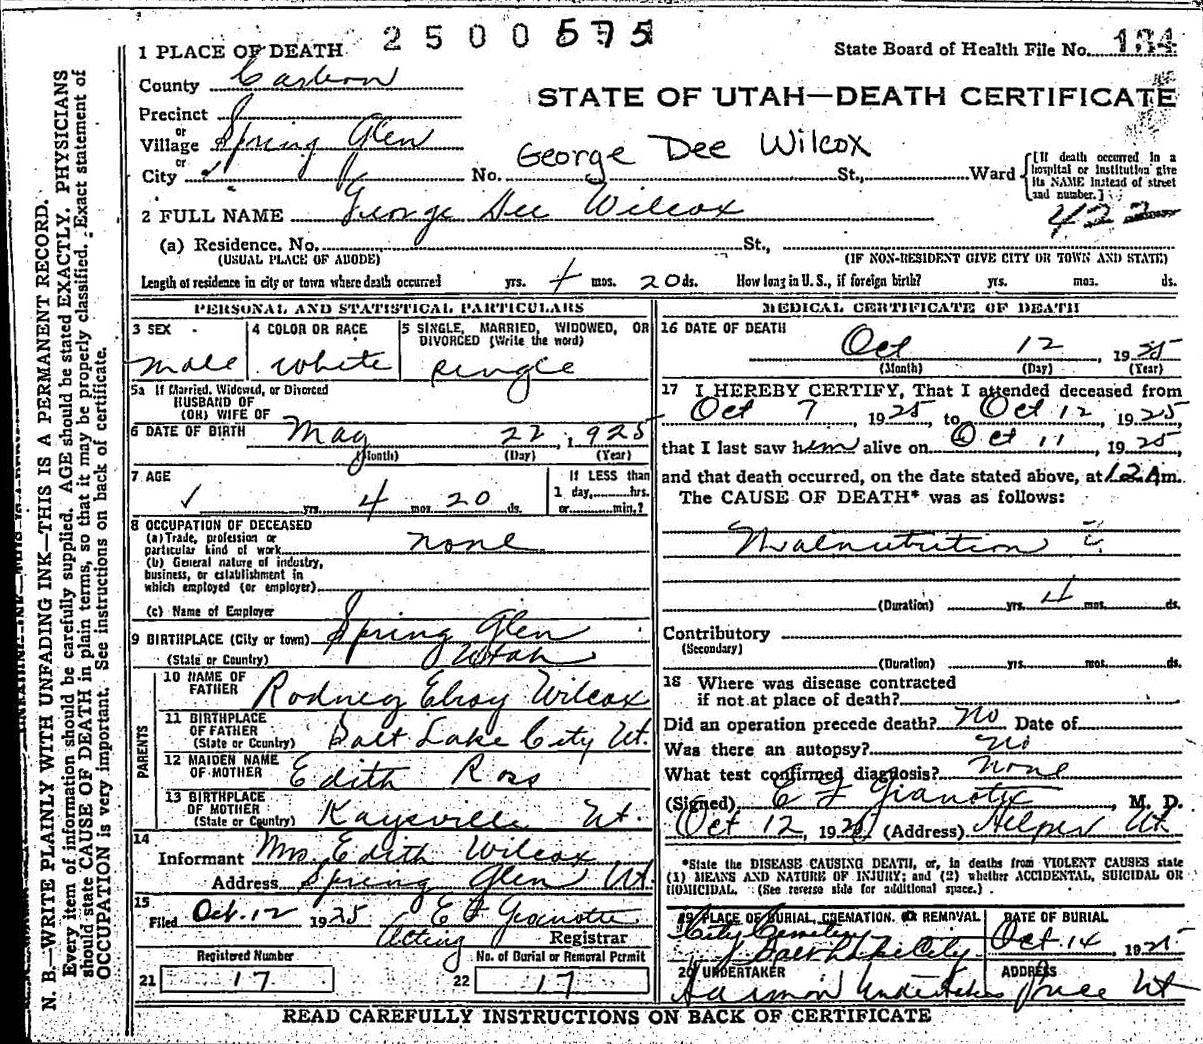 2500575
1 PLACE OF DEATH
State Board of Health File No. 134
County Carbon
STATE OF UTAH—DEATH CERTIFICATE
Precinct
or
Village Spring Glen
or
City
George Dee Wilcox
No. St., Ward
[If death occurred in a hospital or institution give its NAME instead of street and number.]
2 FULL NAME George Dee Wilcox
422
(a) Residence. No. St.,
(USUAL PLACE OF ABODE) (IF NON-RESIDENT GIVE CITY OR TOWN AND STATE)
Length of residence in city or town where death occurred yrs. 4 mos. 20 ds. How long in U. S., if foreign birth? yrs. mos. ds.
PERSONAL AND STATISTICAL PARTICULARS
3 SEX 4 COLOR OR RACE 5 SINGLE, MARRIED, WIDOWED, OR
DIVORCED (Write the word)
male white single
5a If Married, Widowed, or Divorced
HUSBAND OF
(OR) WIFE OF
6 DATE OF BIRTH May 22, 1925
(Month) (Day) (Year)
7 AGE If LESS than
1 day, hrs.
yrs. 4 mos. 20 ds. or min.?
8 OCCUPATION OF DECEASED
(a) Trade, profession or
particular kind of work none
(b) General nature of industry,
business, or establishment in
which employed (or employer)
(c) Name of Employer
9 BIRTHPLACE (City or town) Spring Glen
(State or Country) Utah
PARENTS
10 NAME OF
FATHER Rodney Elroy Wilcox
11 BIRTHPLACE
OF FATHER
(State or Country) Salt Lake City Ut.
12 MAIDEN NAME
OF MOTHER Edith Ross
13 BIRTHPLACE
OF MOTHER
(State or Country) Kaysville Ut.
14
Informant Mrs. Edith Wilcox
Address Spring Glen Ut
15
Filed Oct. 12 1925 E F Gianotti
Acting Registrar
Registered Number No. of Burial or Removal Permit
21 17 22 17
MEDICAL CERTIFICATE OF DEATH
16 DATE OF DEATH
Oct 12, 1925
(Month) (Day) (Year)
17 I HEREBY CERTIFY, That I attended deceased from
Oct 7, 1925 to Oct 12, 1925,
that I last saw him alive on Oct 11, 1925,
and that death occurred, on the date stated above, at 12 A.m.
The CAUSE OF DEATH* was as follows:
Malnutrition
(Duration) yrs. 4 mos. ds.
Contributory
(Secondary)
(Duration) yrs. mos. ds.
18 Where was disease contracted
if not at place of death?
Did an operation precede death? No Date of
Was there an autopsy? no
What test confirmed diagnosis? none
(Signed) E F Gianotti, M. D.
Oct 12, 192 (Address) Helper Ut
*State the DISEASE CAUSING DEATH, or, in deaths from VIOLENT CAUSES state
(1) MEANS AND NATURE OF INJURY; and (2) whether ACCIDENTAL, SUICIDAL OR
HOMICIDAL. (See reverse side for additional space.)
19 PLACE OF BURIAL, CREMATION, OR REMOVAL DATE OF BURIAL
City Cemetery
Salt Lake City Oct 14 1925
20 UNDERTAKER ADDRESS
Harmon Undertakers Price Ut
READ CAREFULLY INSTRUCTIONS ON BACK OF CERTIFICATE
N. B.—WRITE PLAINLY WITH UNFADING INK—THIS IS A PERMANENT RECORD.
Every item of information should be carefully supplied. AGE should be stated EXACTLY. PHYSICIANS
should state CAUSE OF DEATH in plain terms, so that it may be properly classified. Exact statement of
OCCUPATION is very important. See instructions on back of certificate.